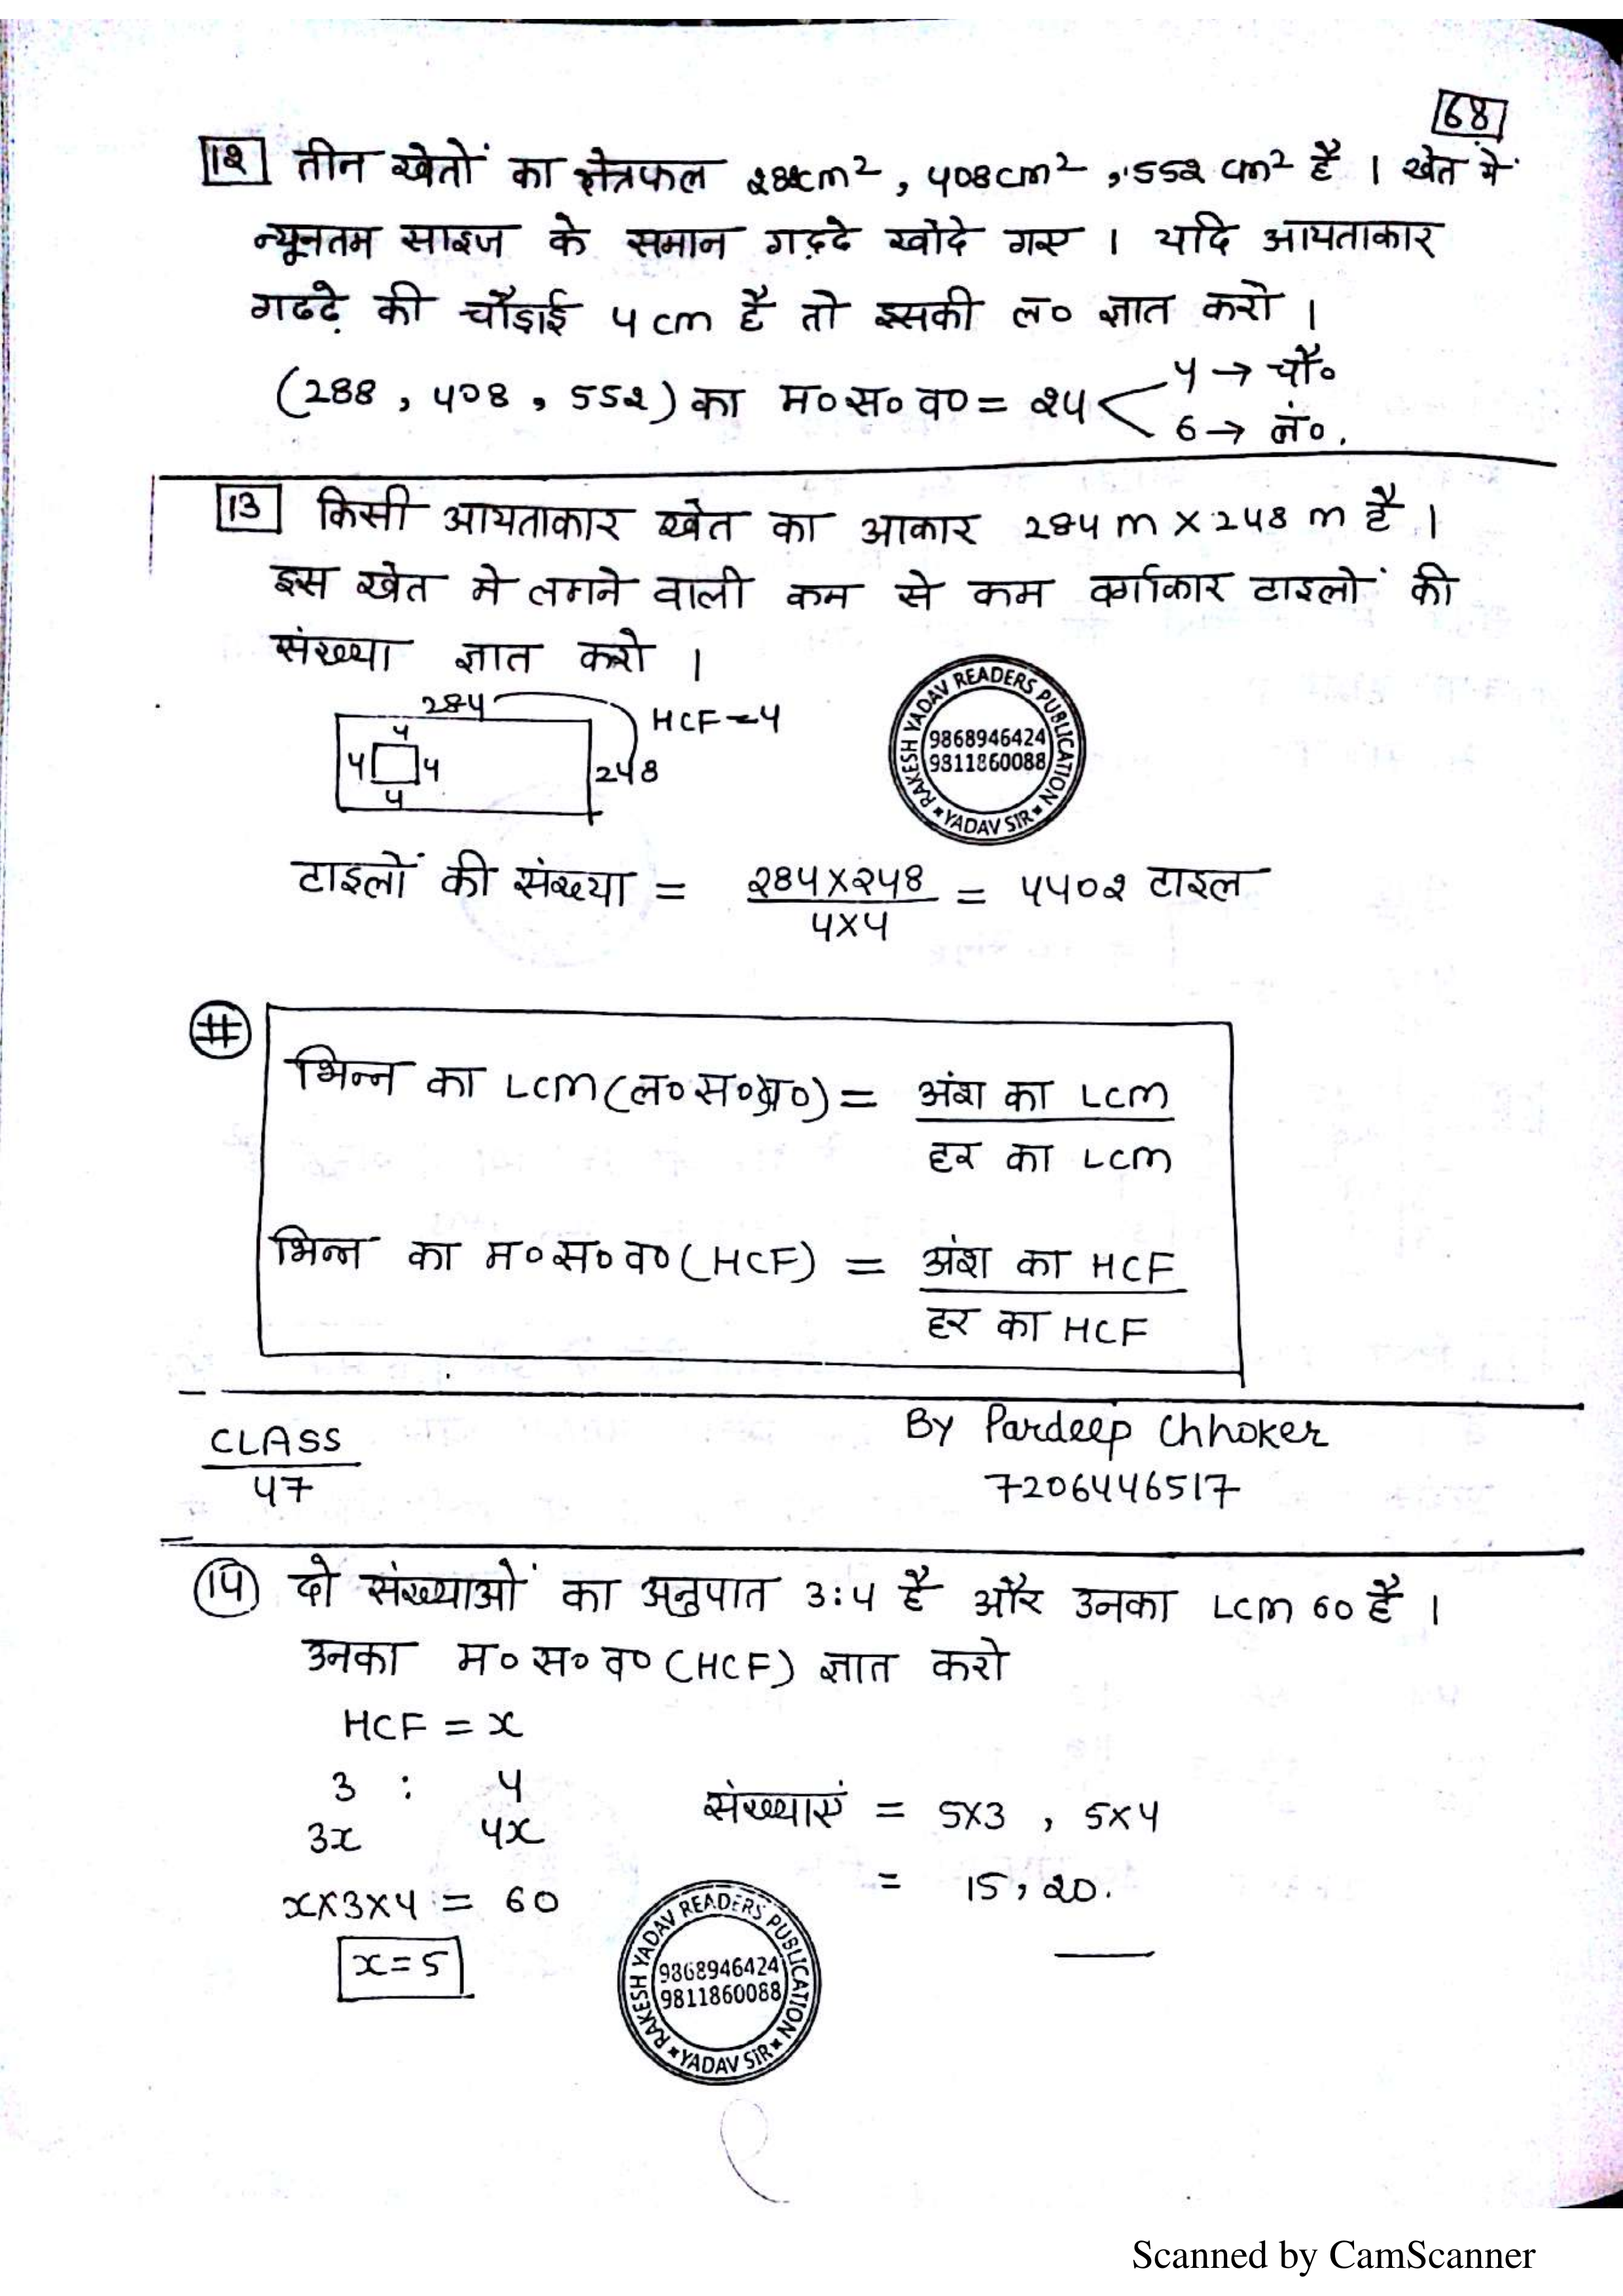 68
12 तीन खेतों का क्षेत्रफल 288cm², 408cm², 552 cm² है । खेत में
न्यूनतम साइज के समान गड़्दे खोदे गए । यदि आयताकार
गढढे़ की चौड़ाई 4 cm है तो इसकी ल० ज्ञात करो ।
(288, 408, 552) का म०स०व० = 24
4 → चौ०
6 → लं०.
13 किसी आयताकार खेत का आकार 284 m × 248 m है ।
इस खेत मे लगने वाली कम से कम वर्गाकार टाइलों की
संख्या ज्ञात करो ।
284
HCF = 4
4
4 4
248
4
RAKESH YADAV READERS PUBLICATION
9868946424
9811860088
YADAV SIR
टाइलों की संख्या = 284×248 / 4×4 = 4402 टाइल
#
भिन्न का LCM (ल०स०प्र०) = अंश का LCM / हर का LCM
भिन्न का म०स०व० (HCF) = अंश का HCF / हर का HCF
CLASS
47
By Pardeep Chhoker
7206446517
14 दो संख्याओं का अनुपात 3:4 है और उनका LCM 60 है ।
उनका म०स०व० (HCF) ज्ञात करो
HCF = x
3 : 4
3x 4x
x×3×4 = 60
x = 5
संख्याएं = 5×3 , 5×4
= 15, 20.
RAKESH YADAV READERS PUBLICATION
9868946424
9811860088
YADAV SIR
Scanned by CamScanner